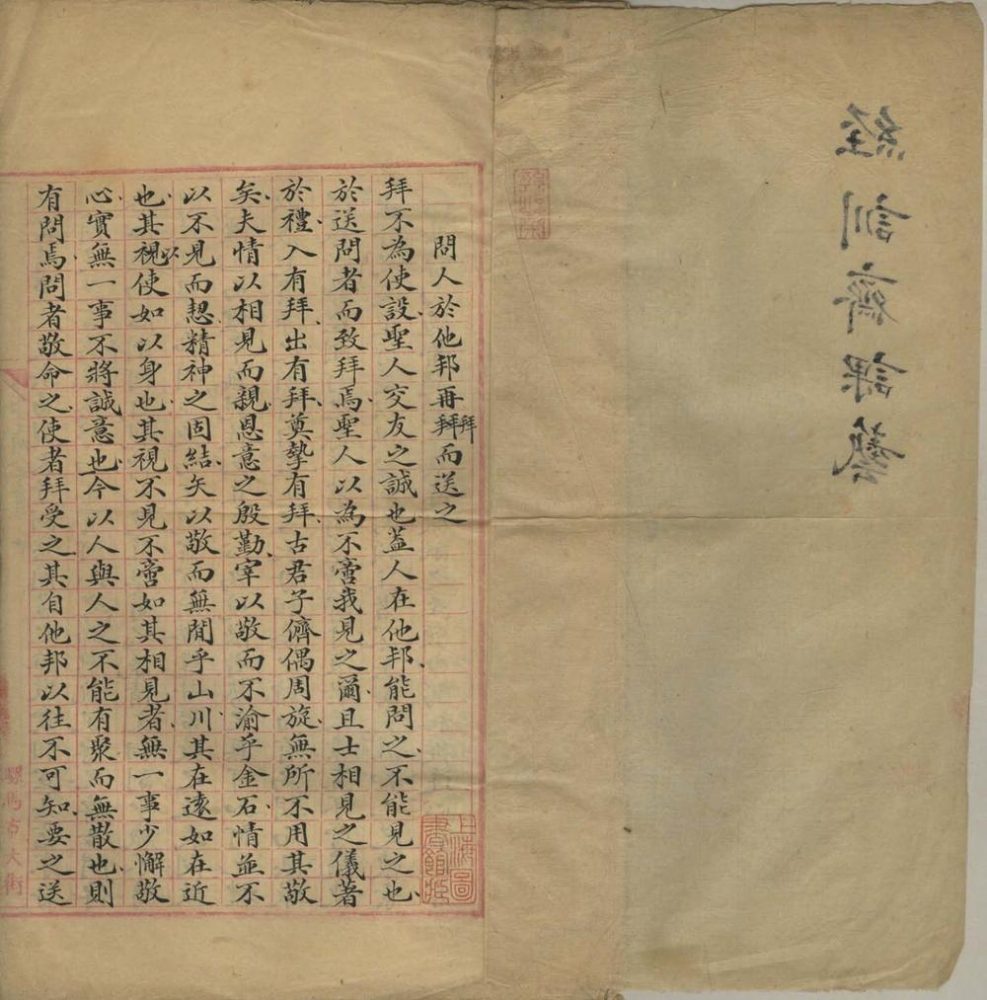 經訓齋課藝
問人於他邦再拜而送之
拜不為使設聖人交友之誠也蓋人在他邦能問之不能見之也
於送問者而致拜焉聖人以為不啻我見之爾且士相見之儀著
於禮入有拜出有拜奠摯有拜古君子儕偶周旋無所不用其敬
矣夫情以相見而親恩意之殷勤宰以敬而不渝乎金石情並不
以不見而懇精神之固結矢以敬而無間乎山川其在遠如在近
也其視使如以身也其視不見不啻如其相見者無一事少懈敬
心實無一事不將誠意也今以人與人之不能有聚而無散也則
有問焉問者敬命之使者拜受之其自他邦以往不可知要之送
上海圖書館藏